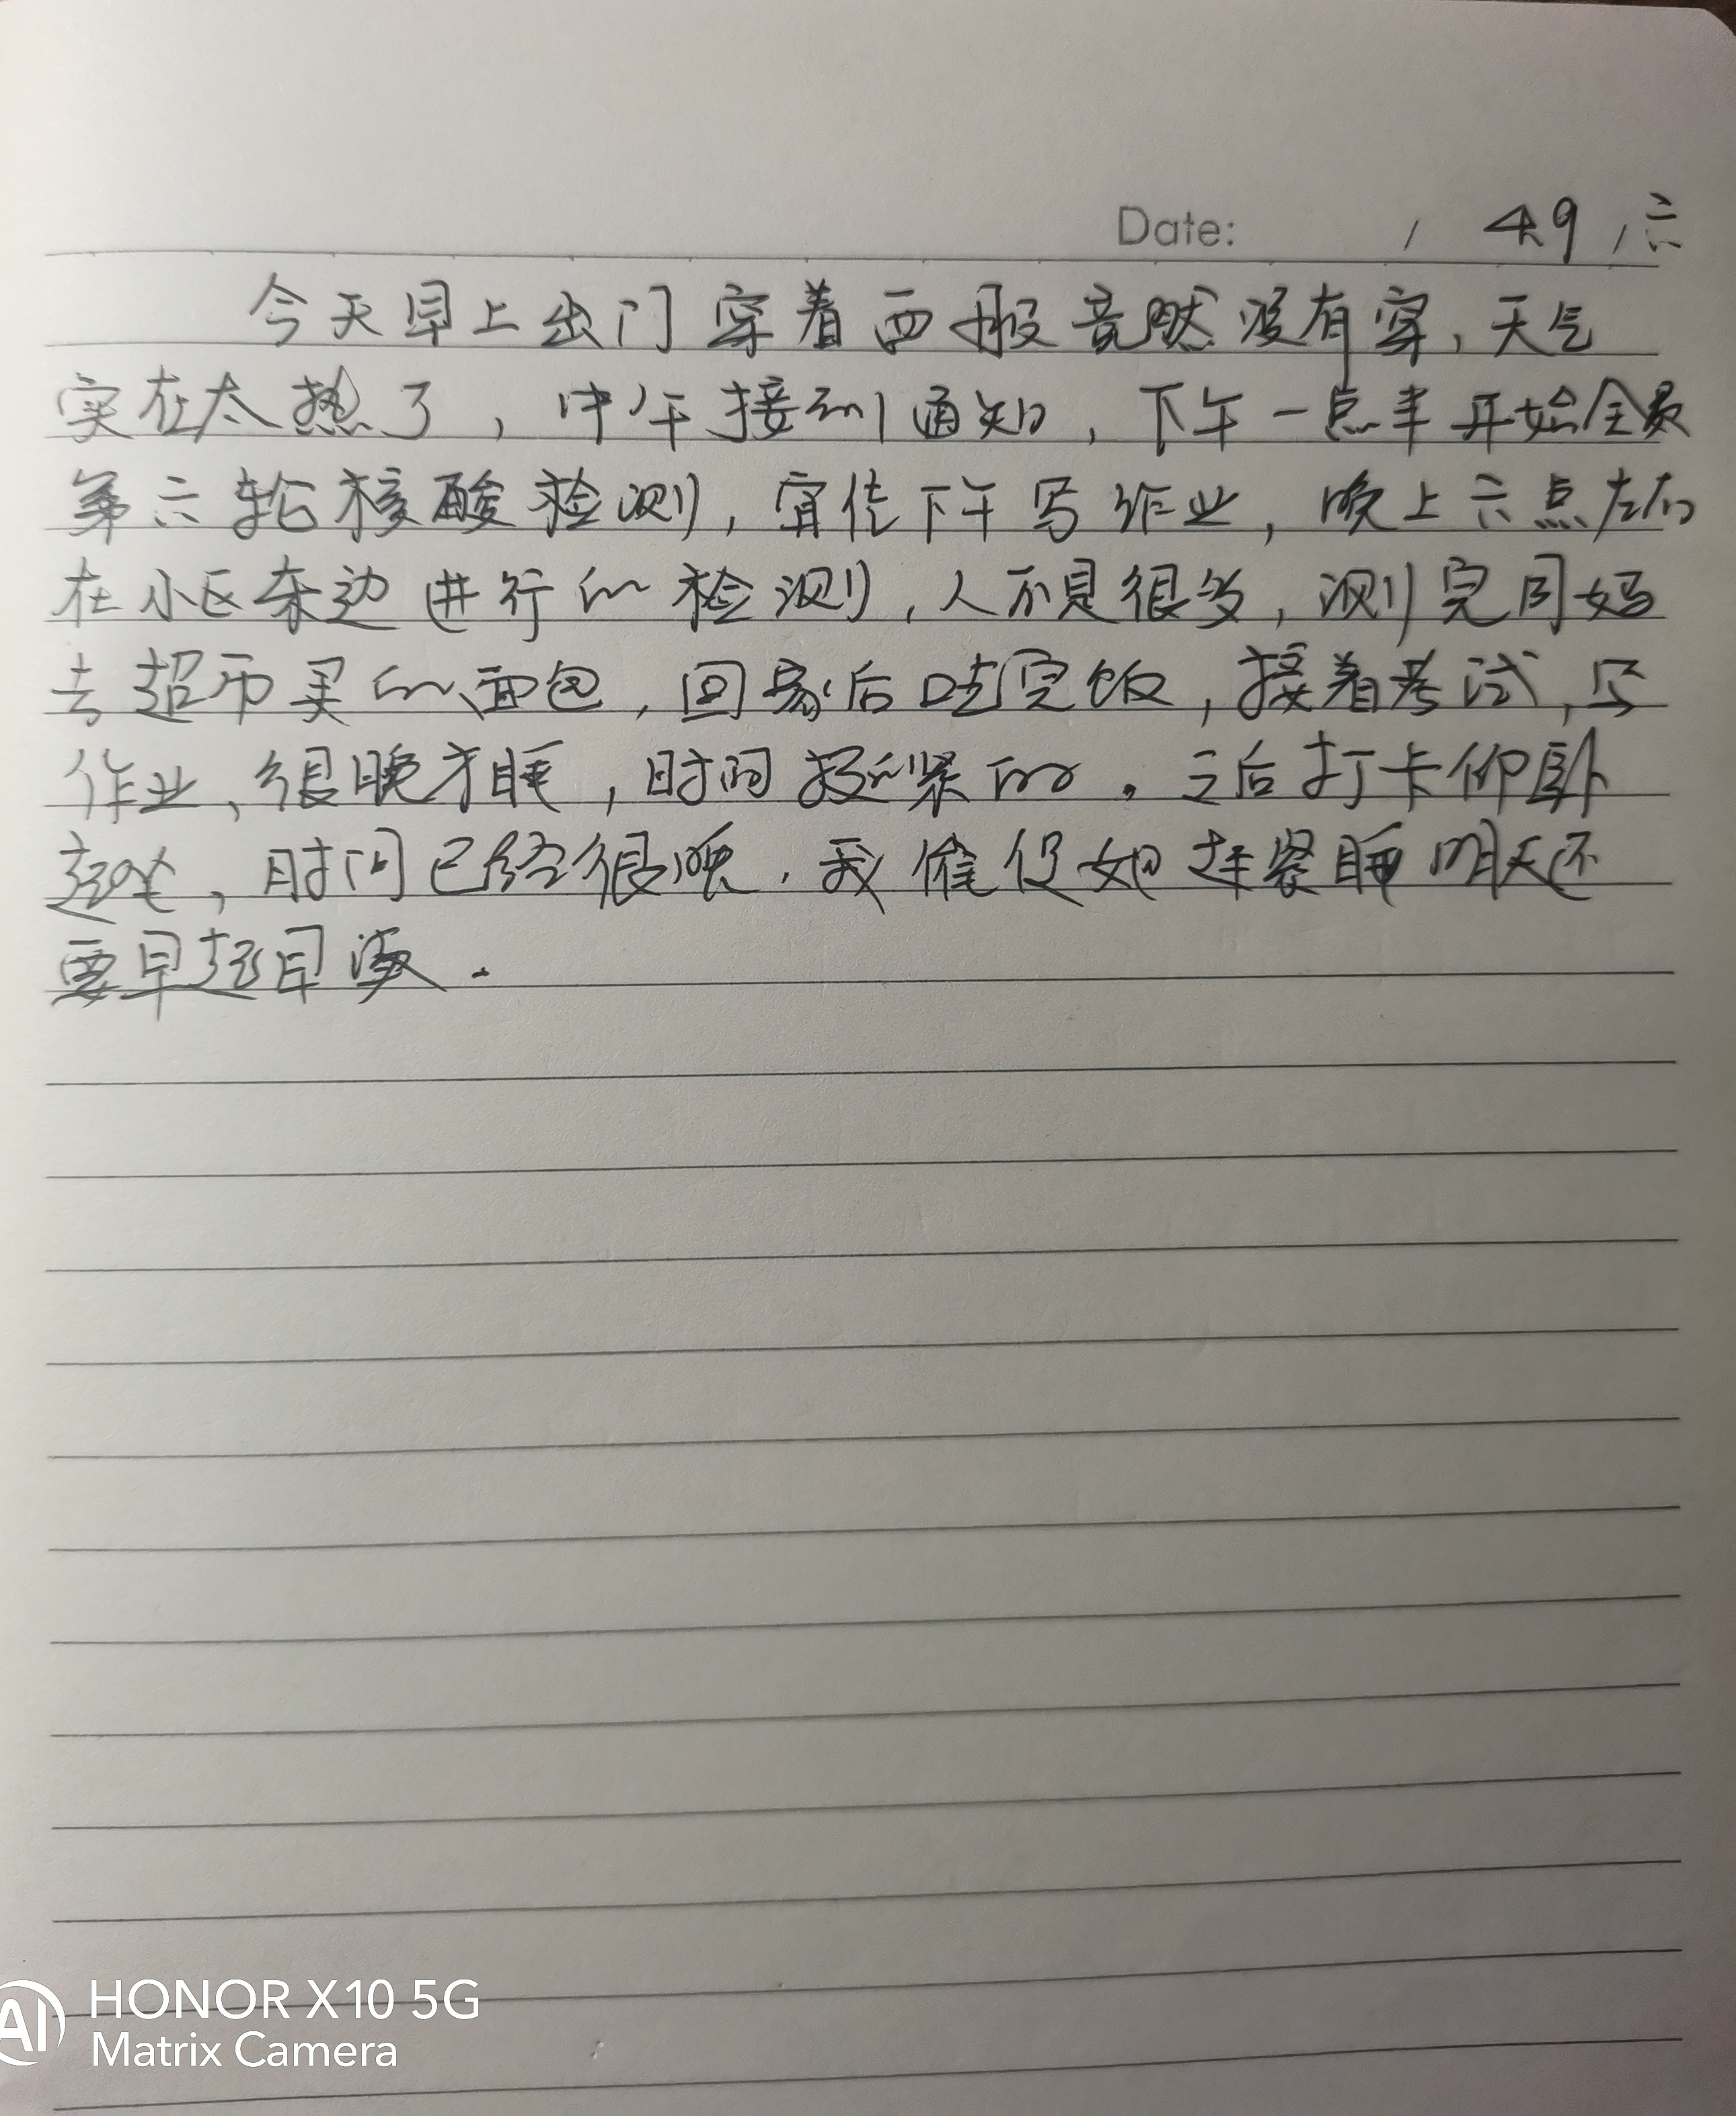 Date: / 4.9 / 六
今天早上出门穿着西服竟然没有穿,天气
实在太热了,中午接到通知,下午一点半开始全员
第六轮核酸检测,宜佳下午写作业,晚上六点左右
在小区东边进行的检测,人不是很多,测完同妈
去超市买的面包,回家后吃完饭,接着考试,写
作业、很晚才睡,时间挺紧的。之后打卡仰卧
起坐,时间已经很晚.我催促她赶紧睡明天还
要早起早读.
HONOR X10 5G
Matrix Camera
AI